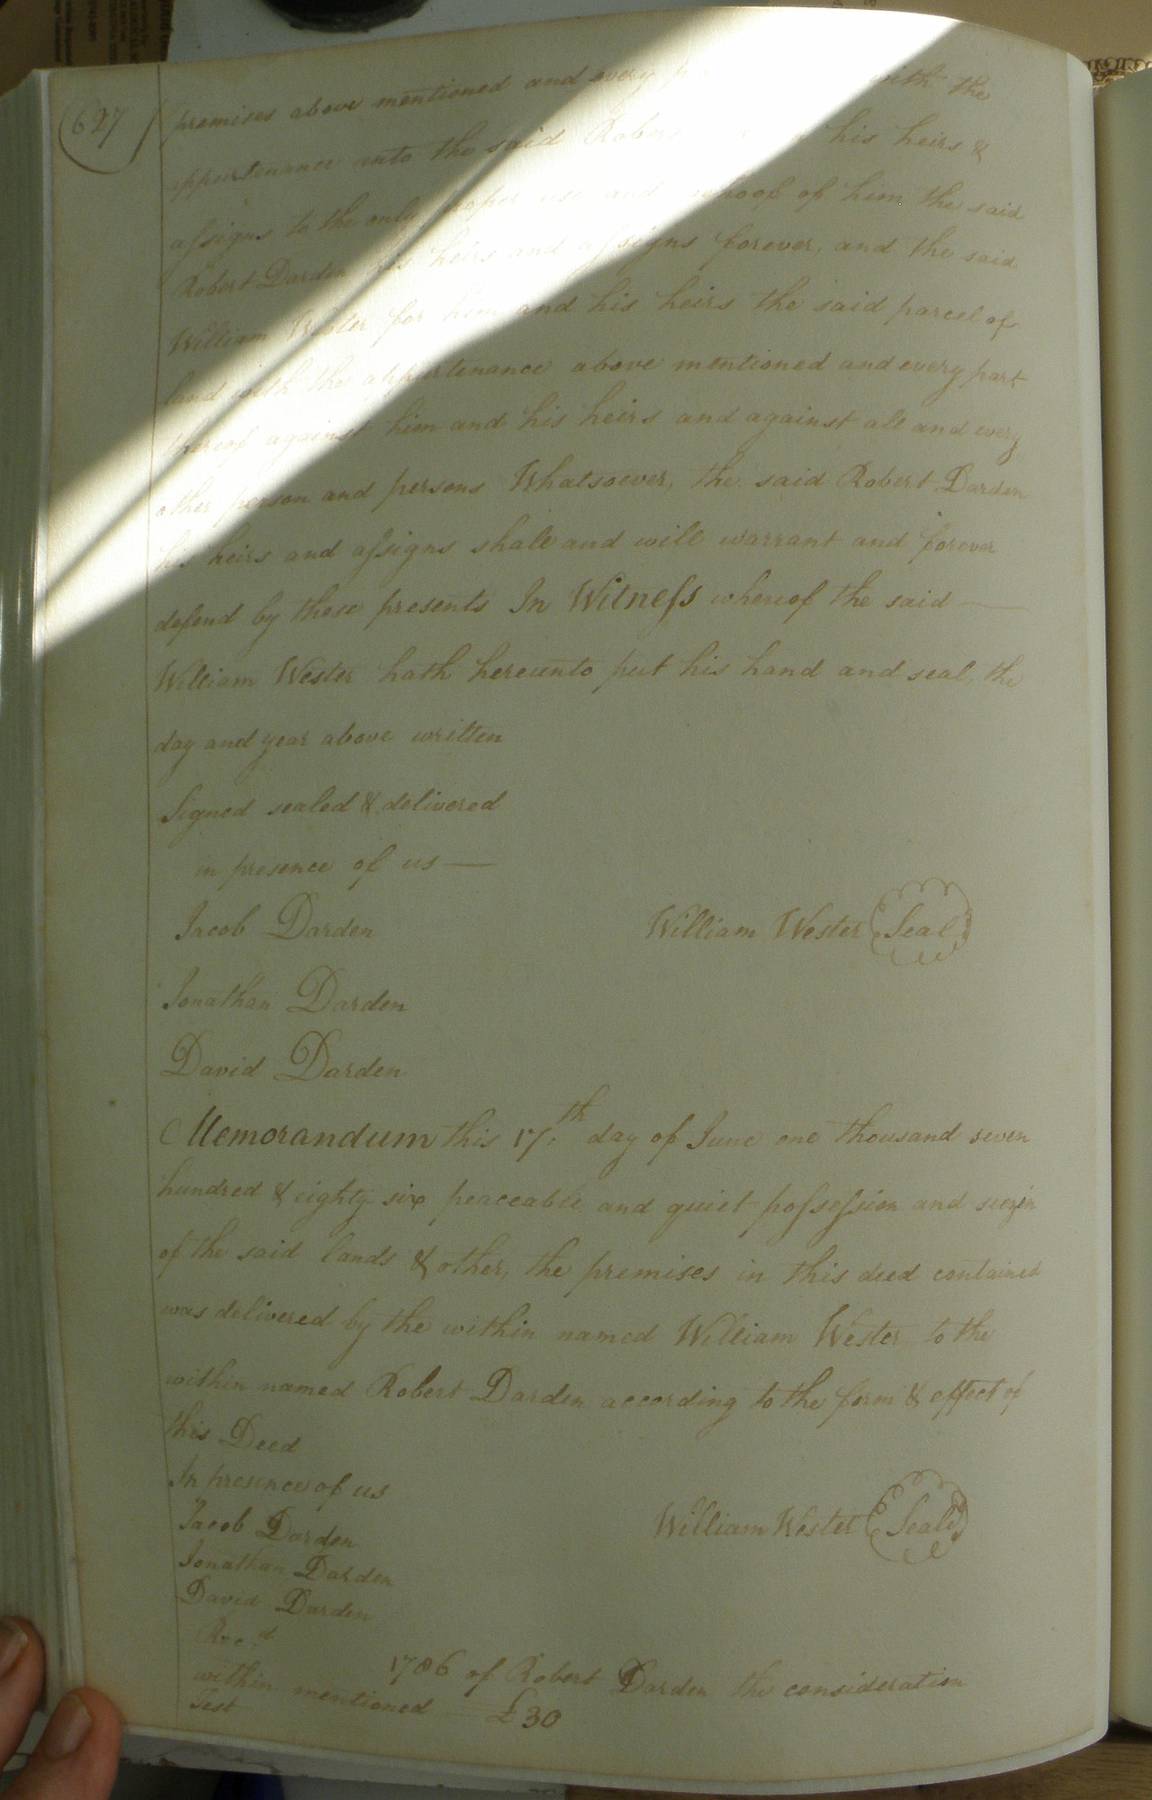 627
premises above mentioned and every with the
appurtenance unto the said Robert his heirs &
assigns to the only proper use and behoof of him the said
Robert Darden his heirs and assigns forever, and the said
William Wester for him and his heirs the said parcel of
land with the appurtenance above mentioned and every part
thereof against him and his heirs and against all and every
other person and persons Whatsoever, the said Robert Darden
his heirs and assigns shall and will warrant and forever
defend by these presents In Witness whereof the said
William Wester hath hereunto put his hand and seal, the
day and year above written
Signed sealed & delivered
in presence of us
Jacob Darden William Wester Seal
Jonathan Darden
David Darden
Memorandum this 17th day of June one thousand seven
hundred & eighty six peaceable and quiet possession and seezin
of the said lands & other, the premises in this deed contained
was delivered by the within named William Wester to the
within named Robert Darden according to the form & effect of
this Deed
In presence of us
Jacob Darden William Wester Seal
Jonathan Darden
David Darden
Rec.d 1786 of Robert Darden the consideration
within mentioned £30
Test